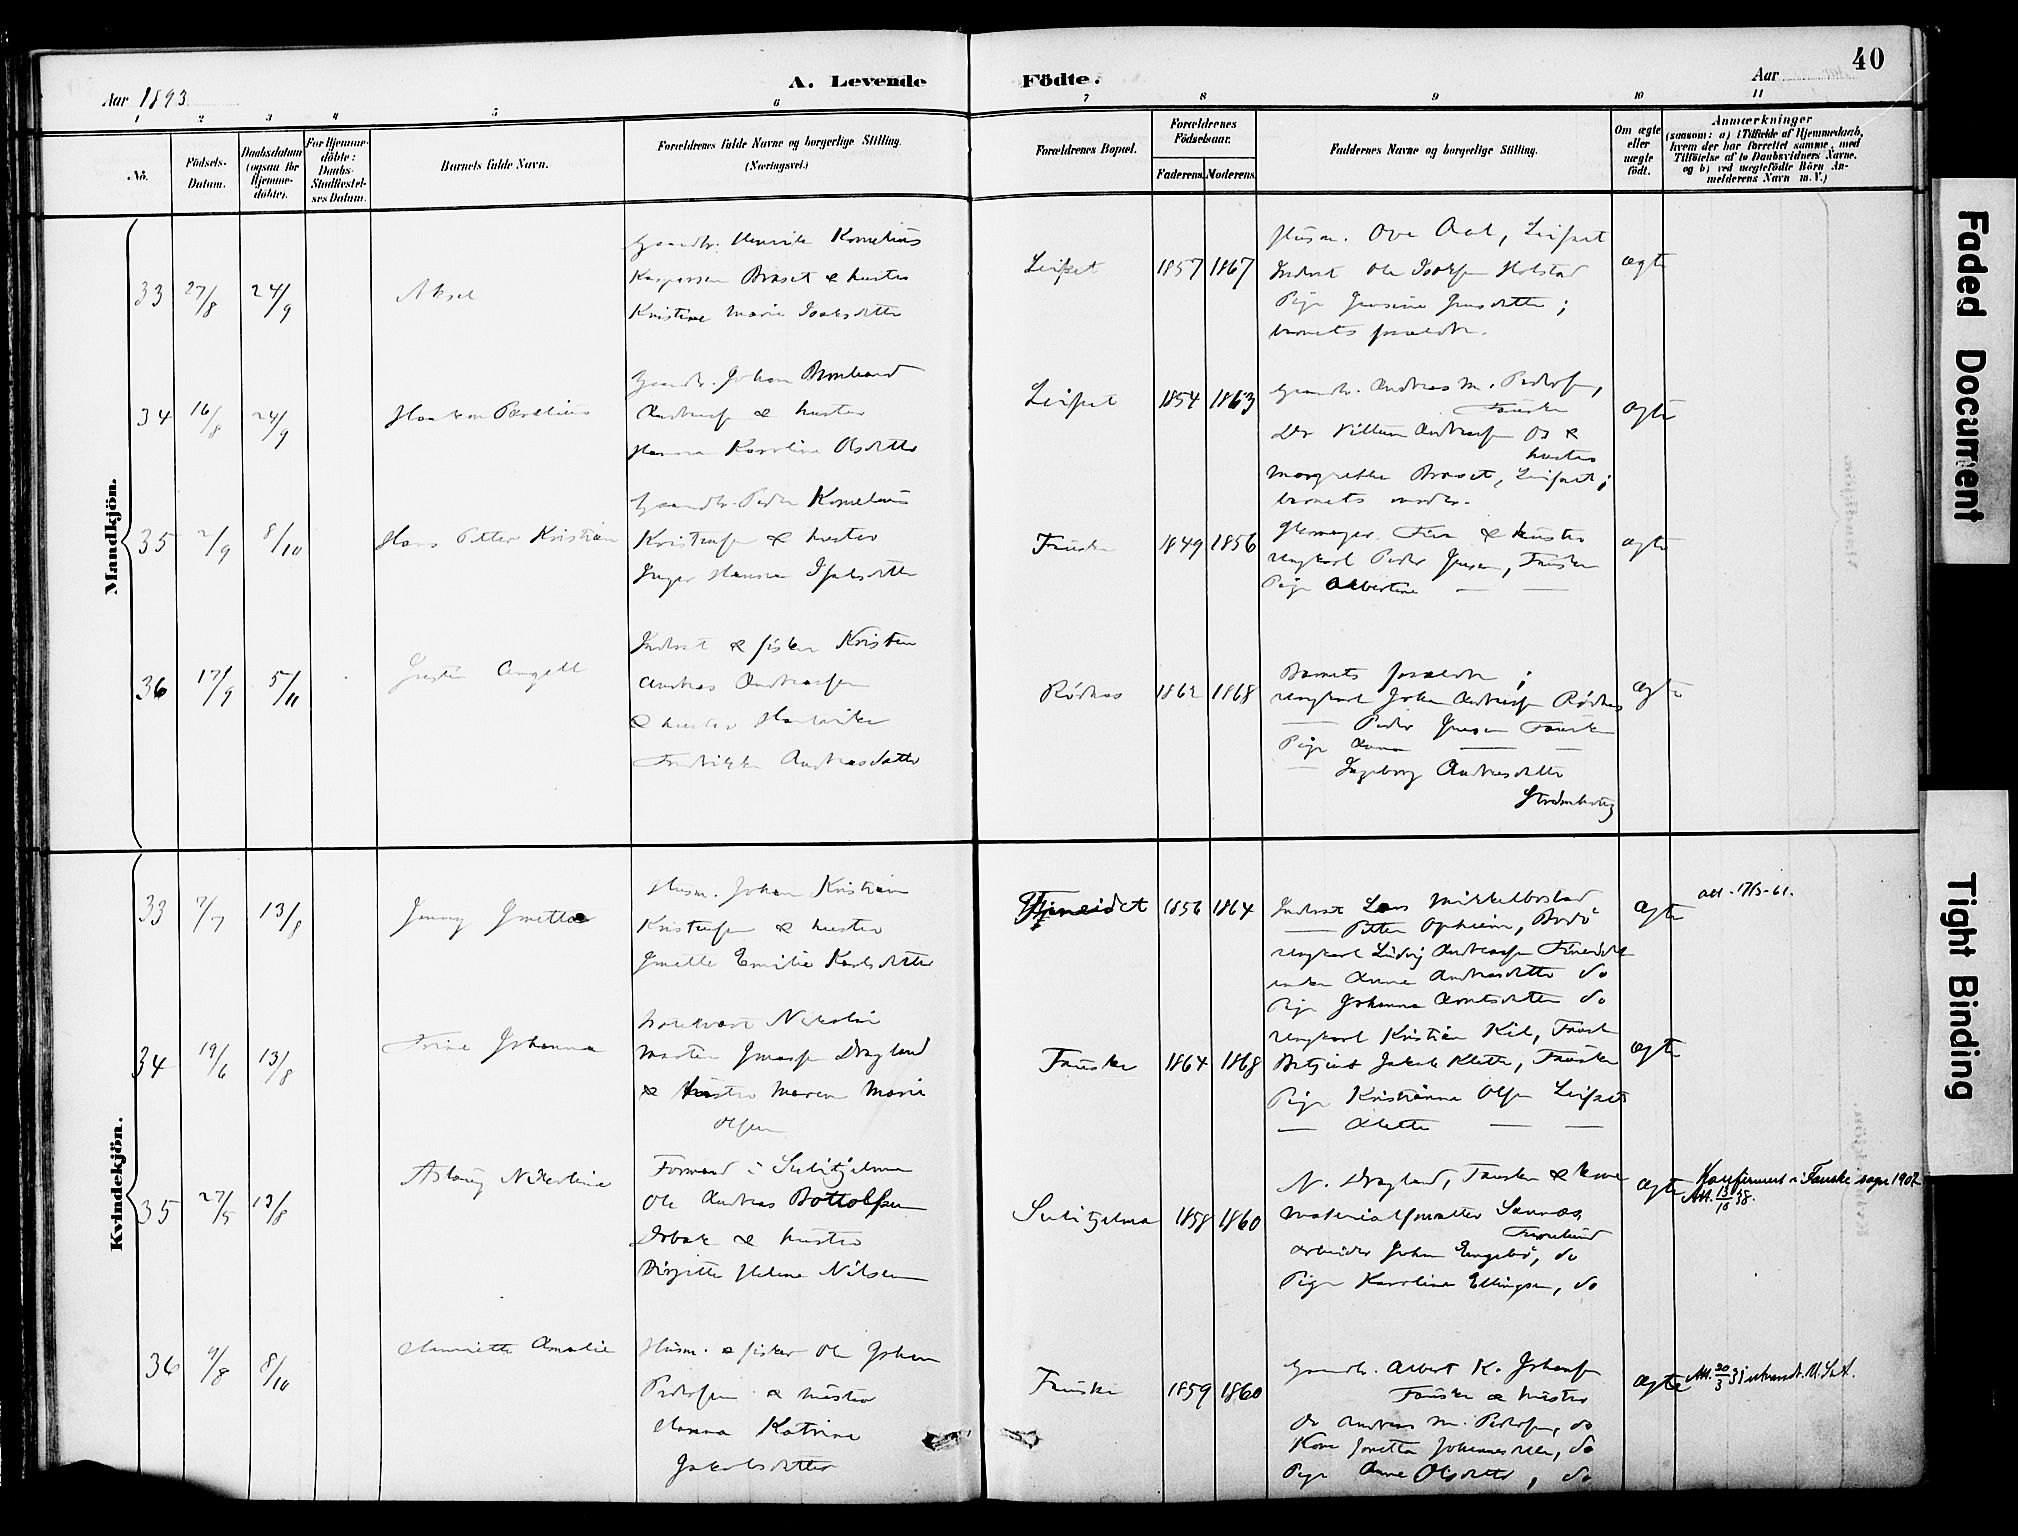 40
A. Levende Födte.
Aar 1893
Aar
1 2 3 4 5 6 7 8 9 10 11
No.
Födsels-Datum.
Daabsdatum (ogsaa for Hjemme-döbte).
For Hjemme-döbte: Daabs-Stadfæstel-ses Datum.
Barnets fulde Navn.
Forældrenes fulde Navne og borgerlige Stilling.
(Næringsvei.)
Forældrenes Bopæl.
Forældrenes Födselsaar.
Faderens. Moderens.
Faddernes Navne og borgerlige Stilling.
Om ægte eller uægte födt.
Anmærkninger
(saasom: a) i Tilfælde af Hjemmedaab,
hvem der har forrettet samme, med
Tilföielse af to Daabsvidners Navne.
og b) ved uægtefödte Börn An-
melderens Navn m. V.)
Mandkjön.
33 27/8 24/9 Aksel
Gaardbr. Henrik Kornelius
Kaspersen Braset & hustru
Kristine Marie Isaksdatter
Leifset 1857 1867
Husm. Ove Aal, Leifset
Inderst Ole Isaksen Holstad
Pige
barnets forældre.
ægte
34 16/8 24/9 Haakon Parelius
Gaardbr. Johan Bernhard
Andreassen & hustru
Hanna Karoline Olsdatter
Leifset 1854 1863
Gaardbr. Andreas M. Pedersen,
Fauske
Do Villum Andreassen Os &
hustru
Margrethe Braset, Leifset;
barnets moder.
ægte
35 2/9 8/10 Hans Petter Kristian
Gaardbr. Peder Kornelius
Kristensen & hustru
Inger Hanna Isaksdatter
Fauske 1849 1856
& hustru
Ungkarl Peder Jensen, Fauske
Pige Albertine — —
ægte
36 17/9 5/11 Gustav Angell
Inderst & fisker Kristen
Andreas Andreassen
& hustru
Fredrikke Andreasdatter
Rødnes 1862 1868
Barnets forældre;
Ungkarl Johan Andreassen Rødnes
— Peder Jensen Fauske
Pige Anna — —
— Ingeborg Andreasdatter
ægte
Kvindekjön.
33 2/7 13/8 Jenny Jonetta
Husm. Johan Kristian
Kristensen & hustru
Jonette Emilie Karlsdatter
Finneidet 1856 1864
Inderst Lars Mikkelbostad
— Petter Opheim, Bodø
Ungkarl Ludvig Andreassen Finneidet
enken Anne Andreasdatter do
Pige Johanna Arntsdatter do
ægte
Att. 17/5-61.
34 19/6 13/8 Trine Johanna
Nikolai
Martin Jonassen Dragland
& hustru Maren Marie
Olsen
Fauske 1864 1868
Ungkarl Kristian Kil, Fausk
Betjent Jakob Klette, Fauske
Pige Kristianna Olsen Leifset
— Alette — —
ægte
35 27/5 13/8 Aslaug Nikoline
Formand i Sulitjelma
Ole Andreas Bottolfsen
& hustru
Birgitte Helene Nilsen
Sulitjelma 1858 1860
N. Dragland, Fauske & kone
Materialforvalter Sannæs,
Furulund
arbeider Johan Engebø, do
Pige Karoline Ellingsen, do
ægte
Konfirmert i Fauske sogn 1907
Att. 13/10 38.
36 9/8 8/10 Henriette Amalie
Husm. & fisker Ole Johan
Pedersen & hustru
Hanna Katrine
Jakobsdatter
Fauske 1859 1860
Gaardbr. Albert K. Johansen
Fauske & hustru
do Andreas M. Pedersen, do
Kone Jonetta Johannesdatter, do
Pige Anne Olsdatter, do
ægte
Att. 30/3 31 utvandr. U.S.A.
Faded Document
Tight Binding